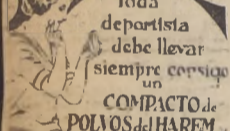 Toda
deportista
debe llevar
siempre consigo
un
COMPACTO de
POLVOS del HAREM